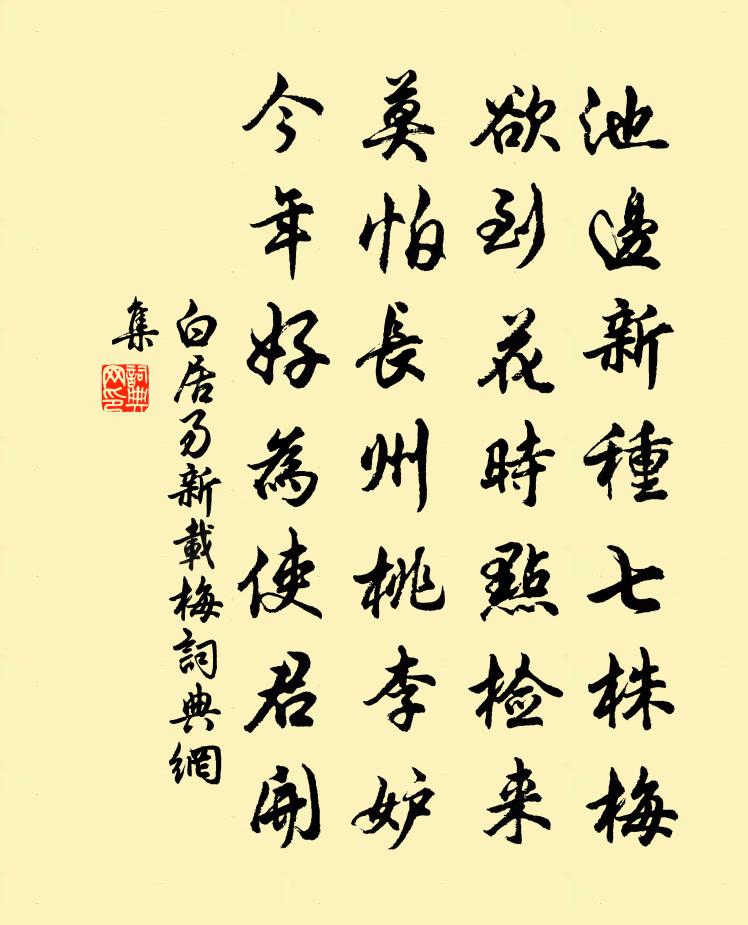 池邊新種七株梅
欲到花時點检来
莫怕長州桃李妒
今年好為使君開
白居易新載梅詞典網
集
詞典
网印